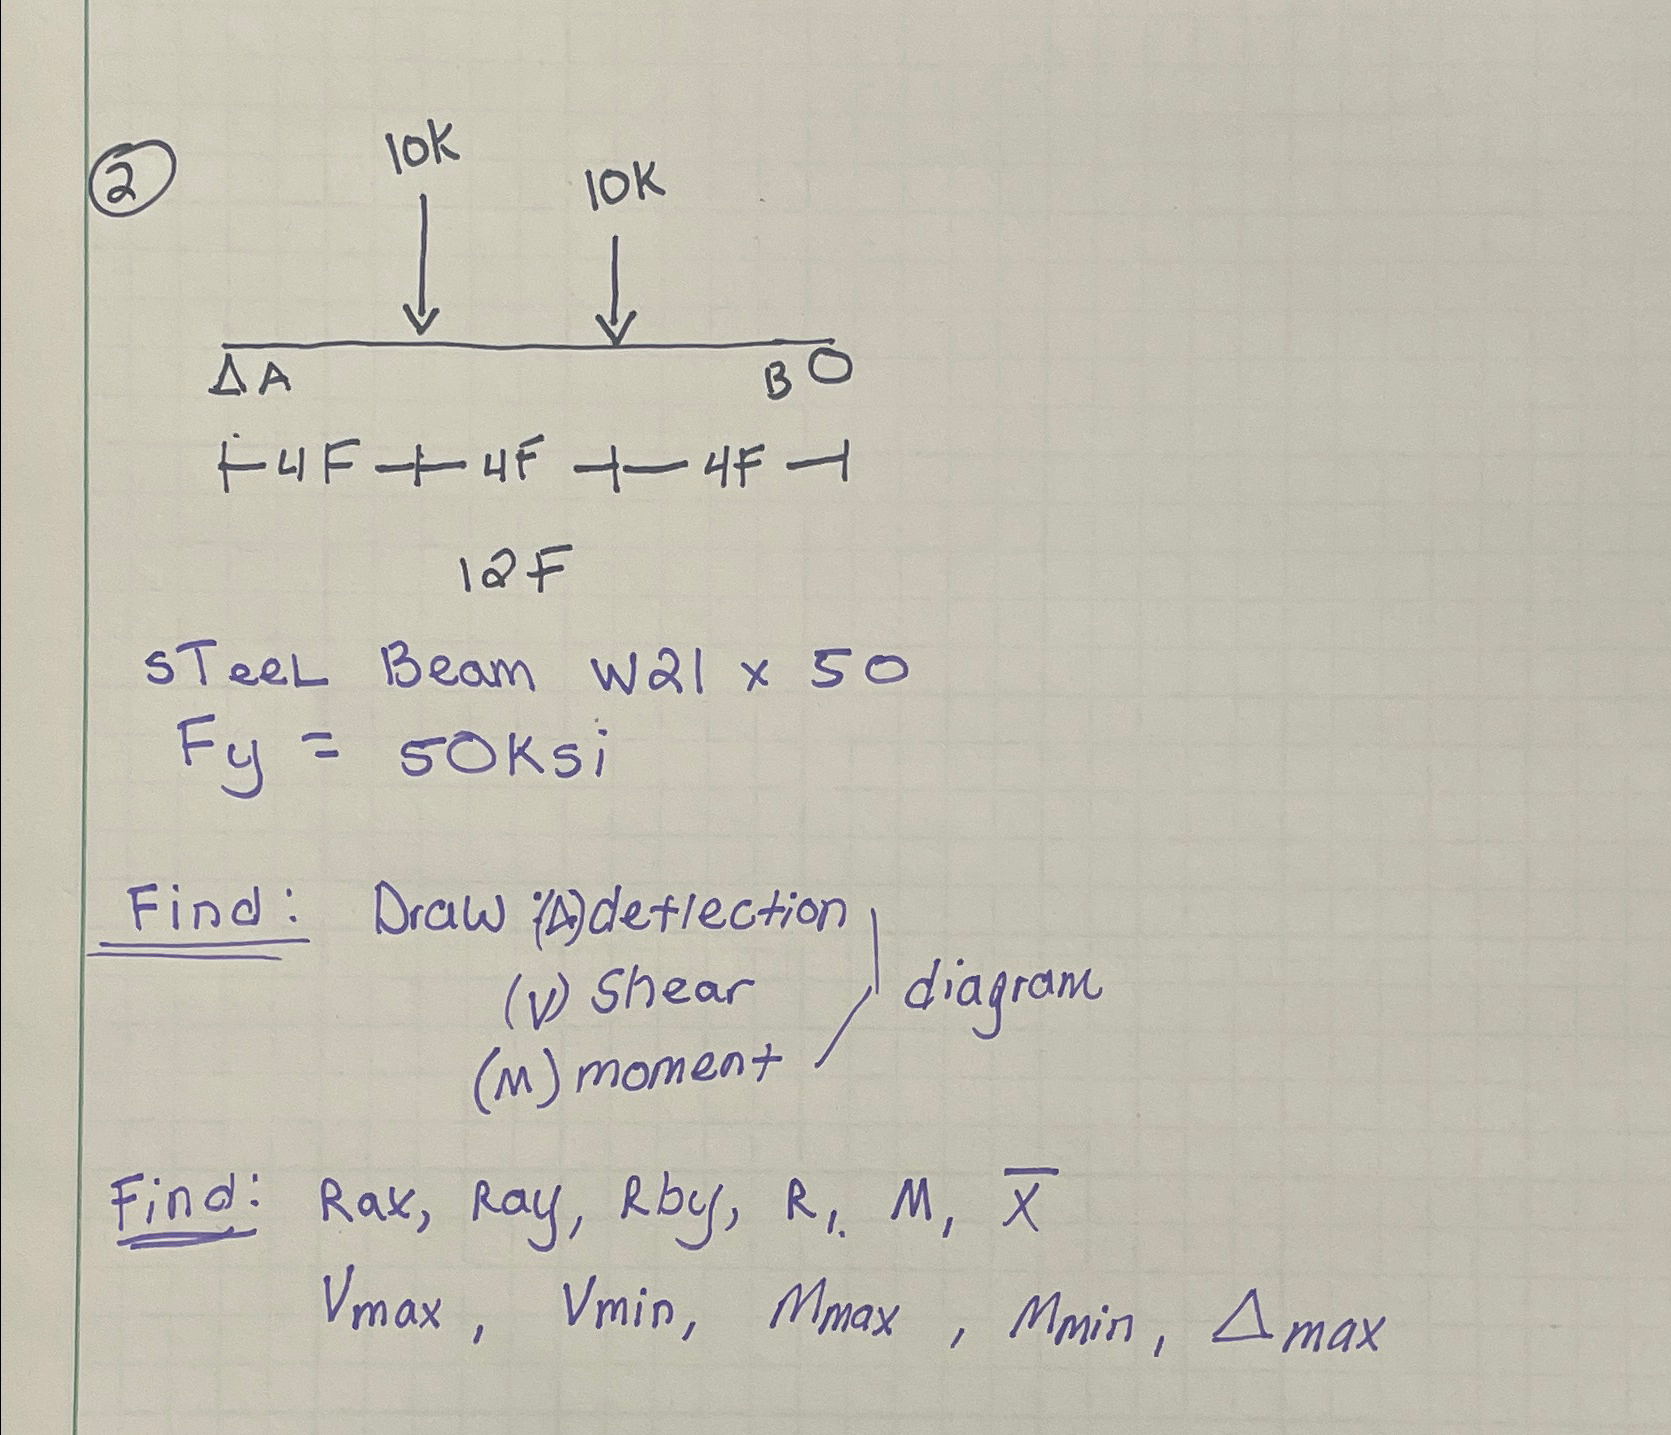 2
10K
10K
A
B
4F 4F 4F
12F
STeeL Beam W21 x 50
Fy = 50Ksi
Find: Draw (Δ) deflection
(V) Shear
diagram
(M) moment
Find: Rax, Ray, Rby, R, M, X̅
Vmax, Vmin, Mmax, Mmin, Δmax